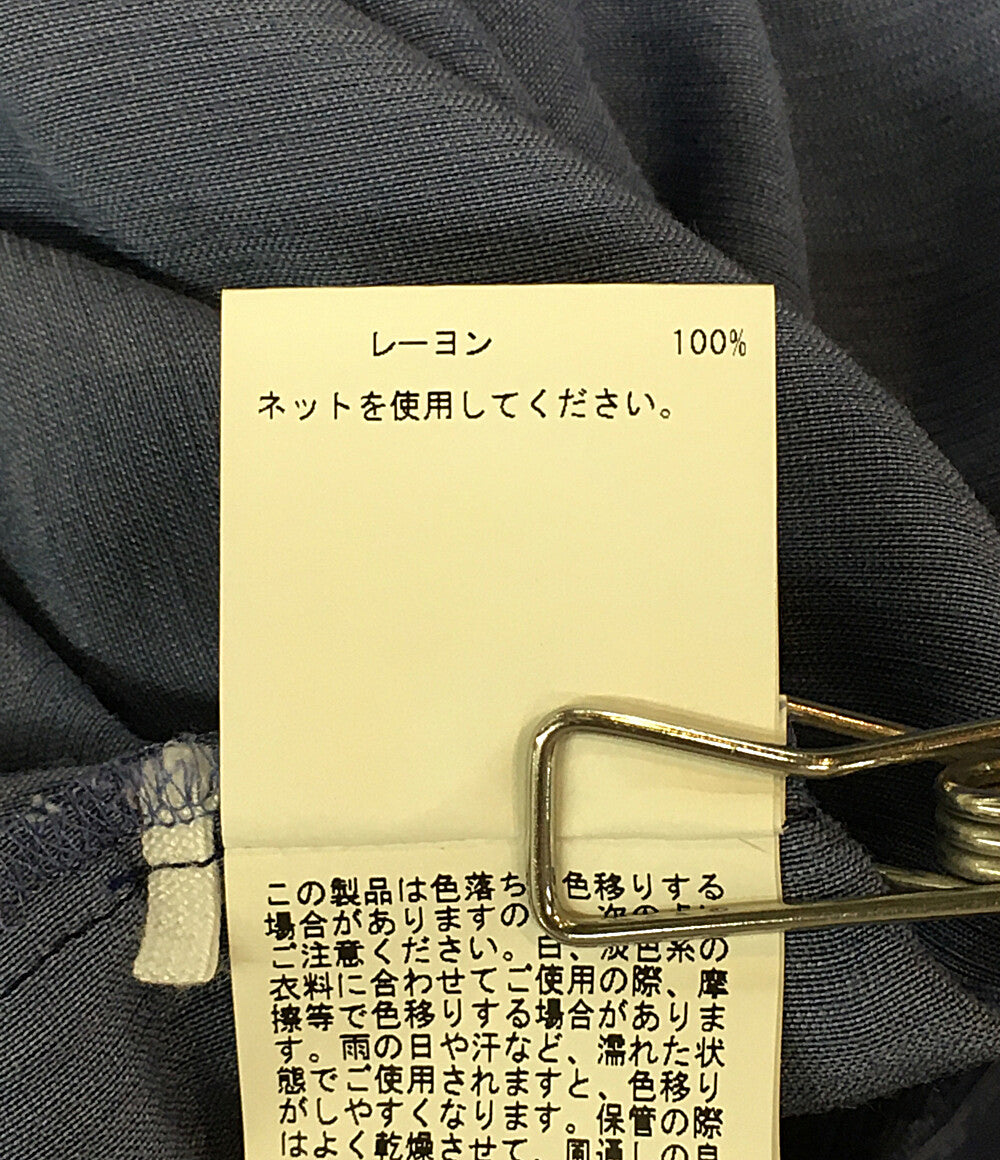 レーヨン 100%
ネットを使用してください。
この製品は色落ち 色移りする
場合がありますの
ご注意ください。白、淡色系の
衣料に合わせてご使用の際、摩
擦等で色移りする場合がありま
す。雨の日や汗など、濡れた状
態でご使用されますと、色移り
がしやすくなります。保管の際
はよく乾燥させて、風通しの良